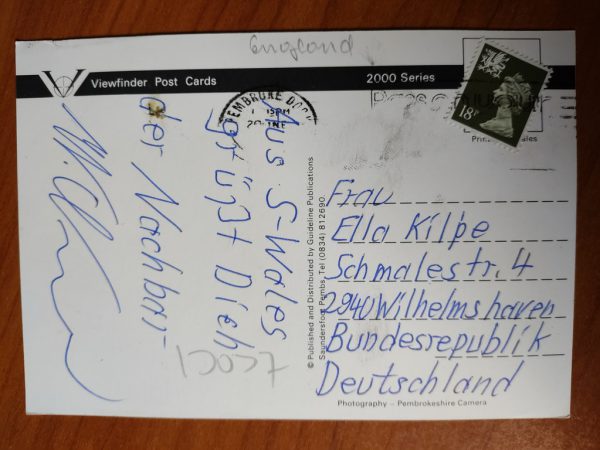 England
Viewfinder Post Cards
2000 Series
PEMBROKE DOCK
18P
Aus S-Wales
grüßt Dich
der Nachbar
© Published and Distributed by Guideline Publications
Saundersfoot Pembs. Tel (0834) 812690
Frau
Ella Kilpe
Schmalestr. 4
2940 Wilhelmshaven
Bundesrepublik
Deutschland
Photography – Pembrokeshire Camera